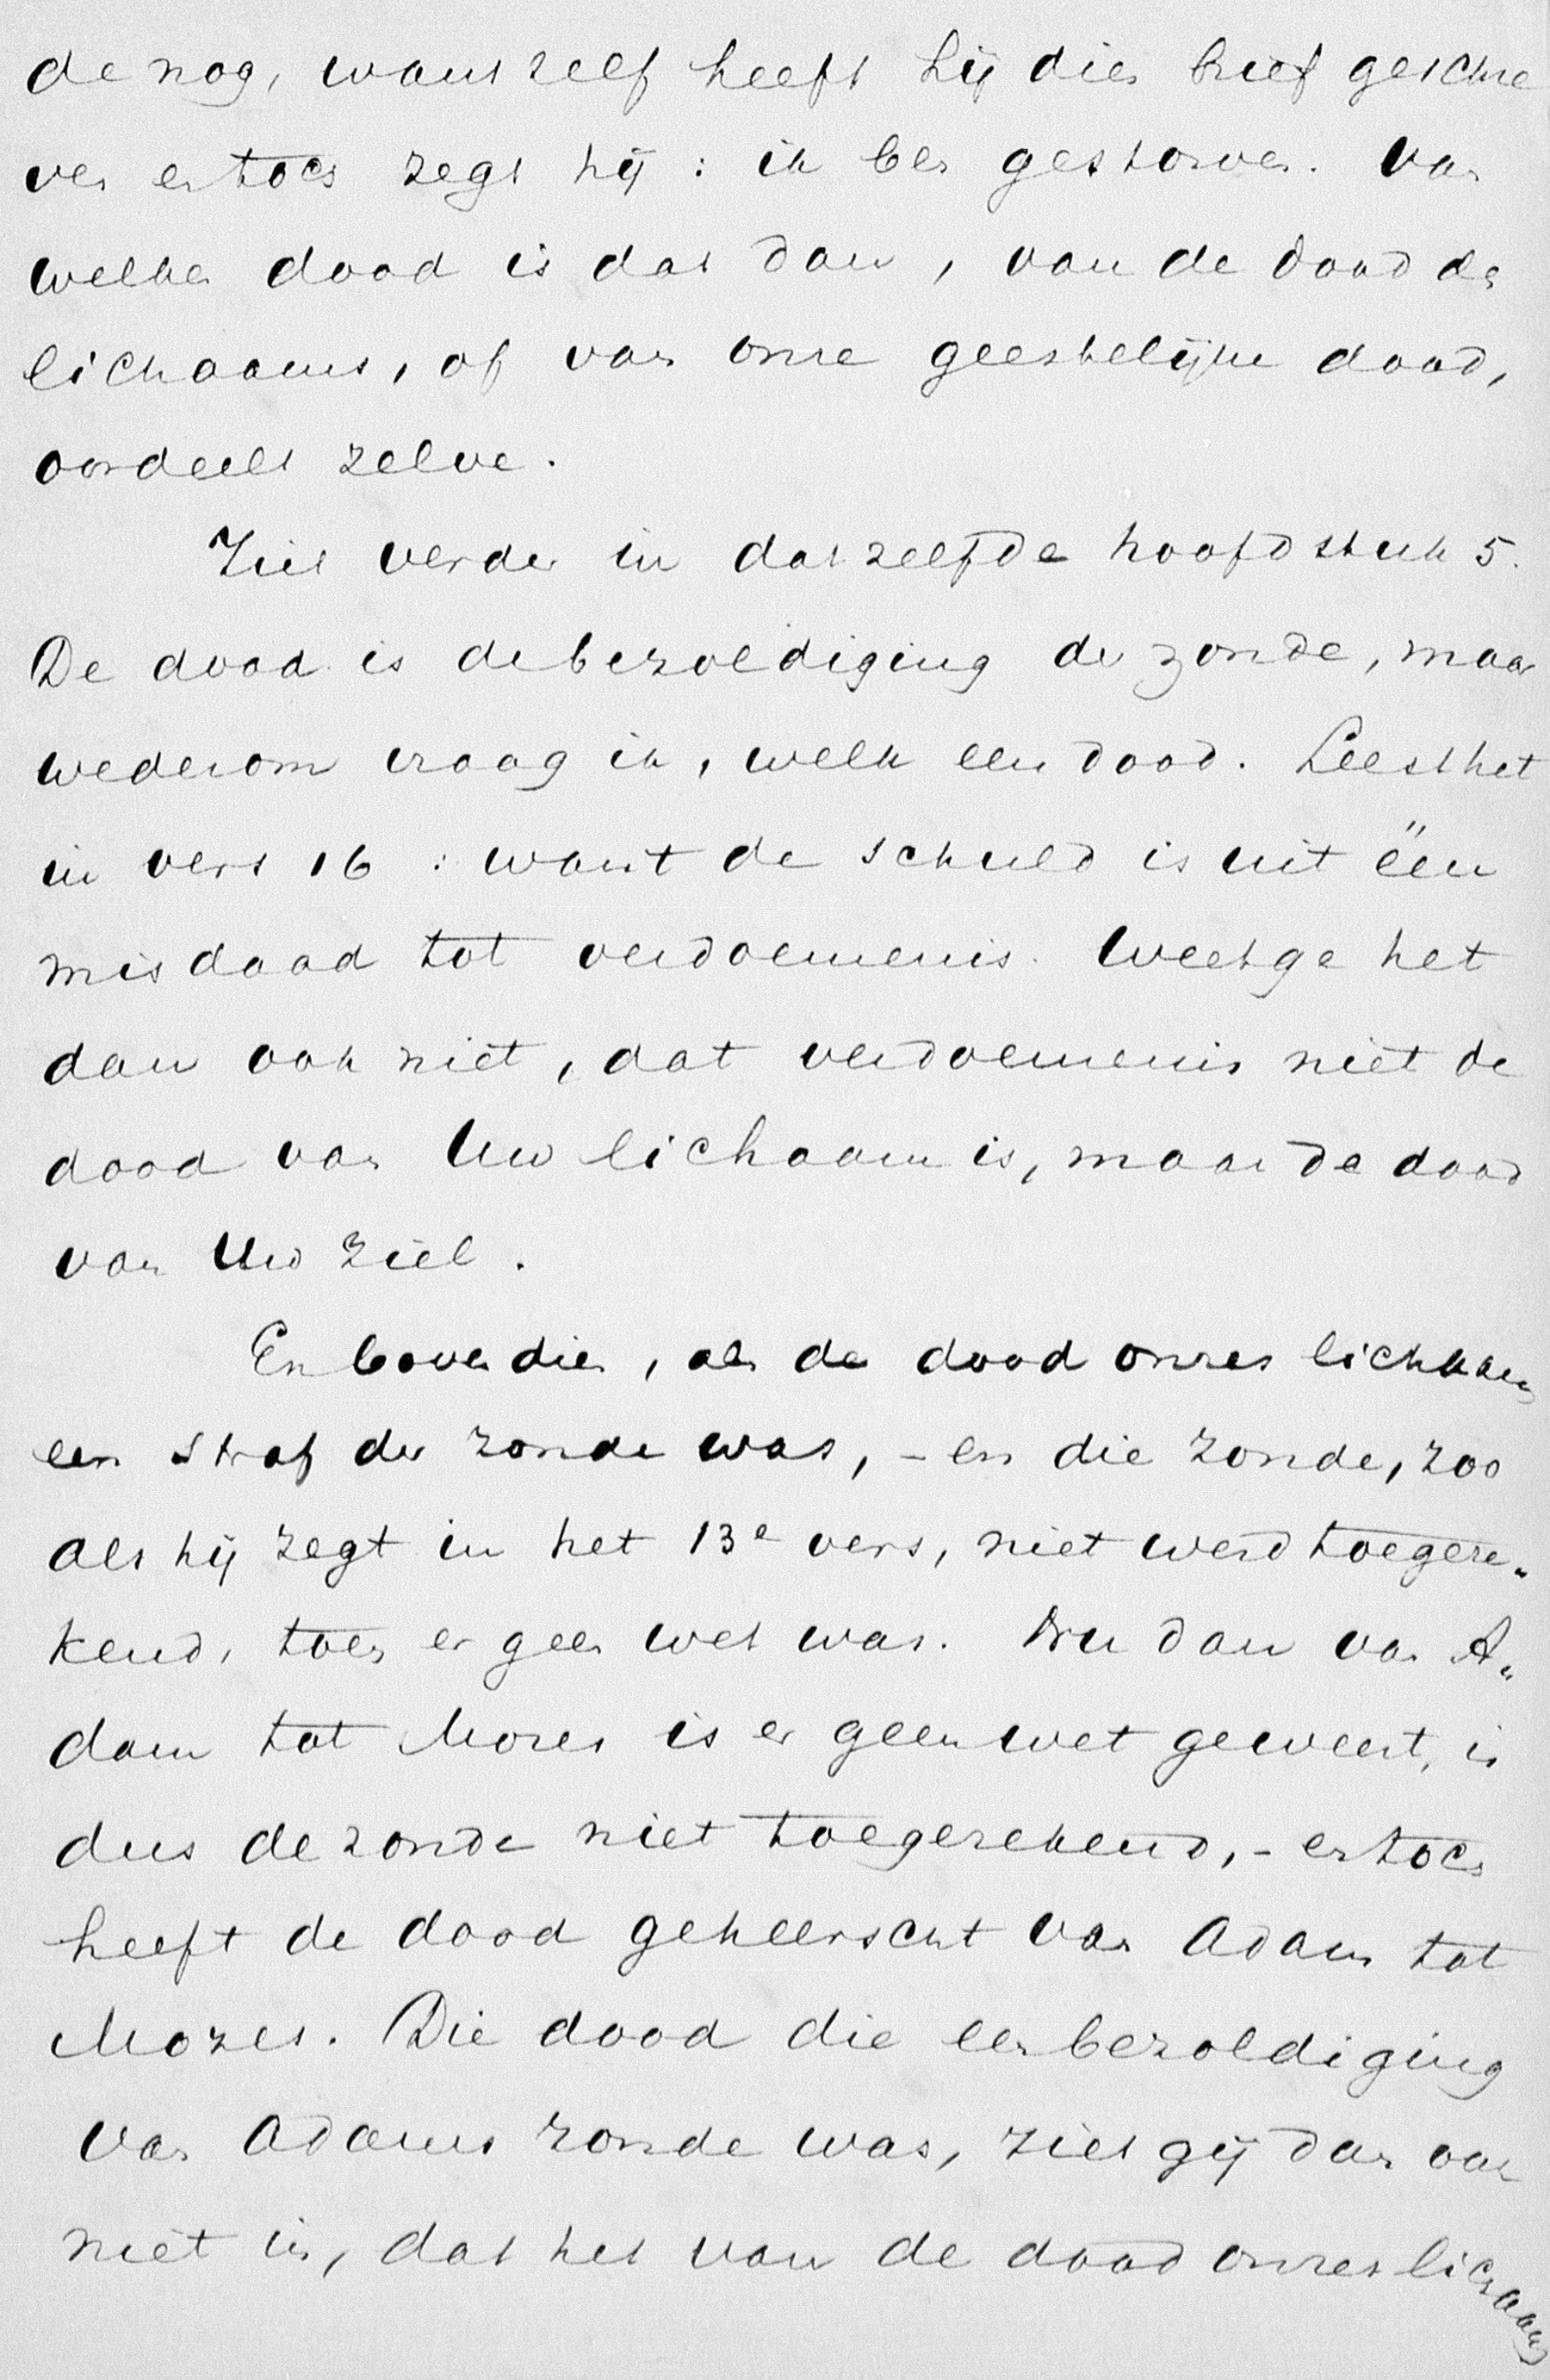 de nog, want zelf heeft hij dien brief geschre
ven en toch zegt hij : ik ben gestorven. Van
welken dood is dat dan, van de dood des
lichaams, of van onze geestelijke dood,
oordeelt zelve.
Ziet verder in datzelfde hoofdstuk 5.
De dood is de bezoldiging der zonde, maar
wederom vraag ik, welk een dood. Leest het
in vers 16 : want de schuld is uit ëen
misdaad tot verdoemenis. Weet ge het
dan ook niet, dat verdoemenis niet de
dood van Uw lichaam is, maar de dood
van Uw ziel.
En bovendien, als de dood onzes lichaams
een straf der zonde was, - en die zonde, zoo
als hij zegt in het 13e vers, niet werd toegere„
kend, toen er geen wet was. Nu dan van A„
dam tot Mozes is er geen wet geweest, is
dus de zonde niet toegerekend, - en toch
heeft de dood geheerscht van Adam tot
Mozes. Die dood die een bezoldiging
van Adams zonde was, ziet gij dan ook
niet in, dat het van de dood onzes lichaams